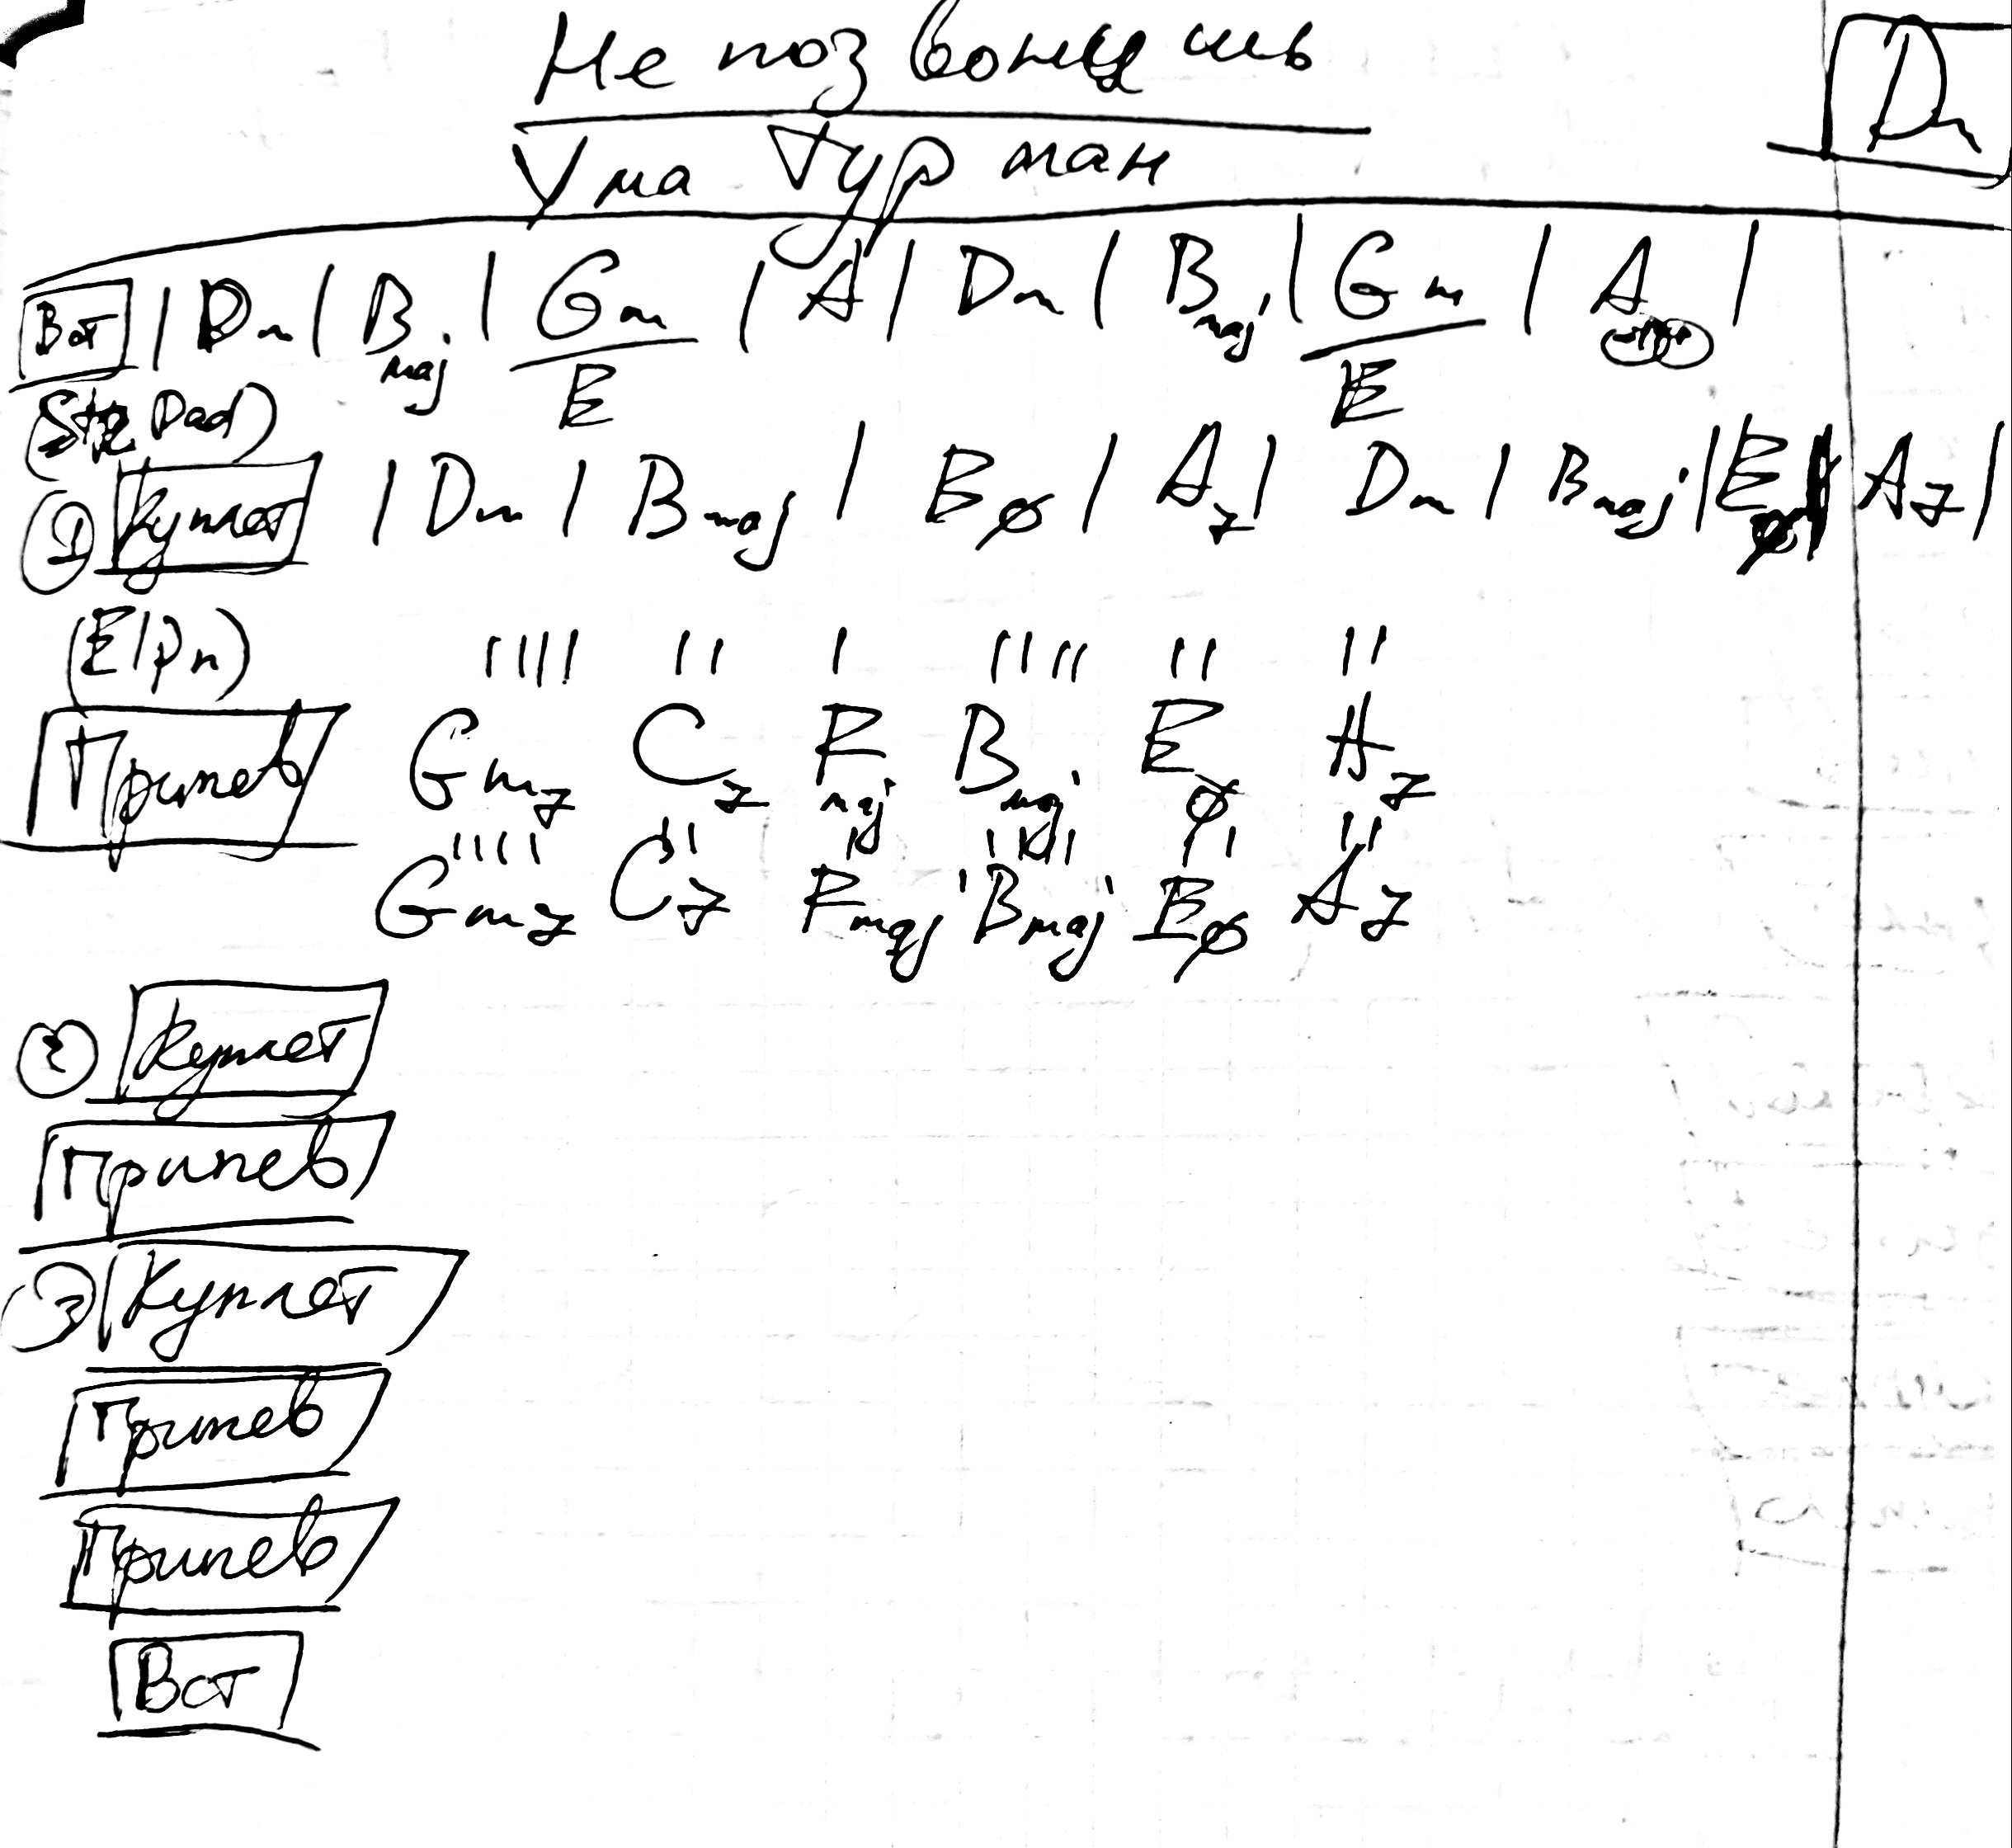 Не позвонишь
Dm
Ума Турман
Вст | Dm | Bmaj | Gm/E | A | Dm | Bmaj | Gm/E | A |
(Str Pad)
① Куплет | Dm | Bmaj | Eø | A7 | Dm | Bmaj | Eø | A7 |
(ElPn) |||| || | |||| || ||
Припев Gm7 C7 Fmaj Bmaj Eø A7
|||| || || |||| || ||
Gm7 C7 Fmaj Bmaj Eø A7
② Куплет
Припев
③ Куплет
Припев
Припев
Вст